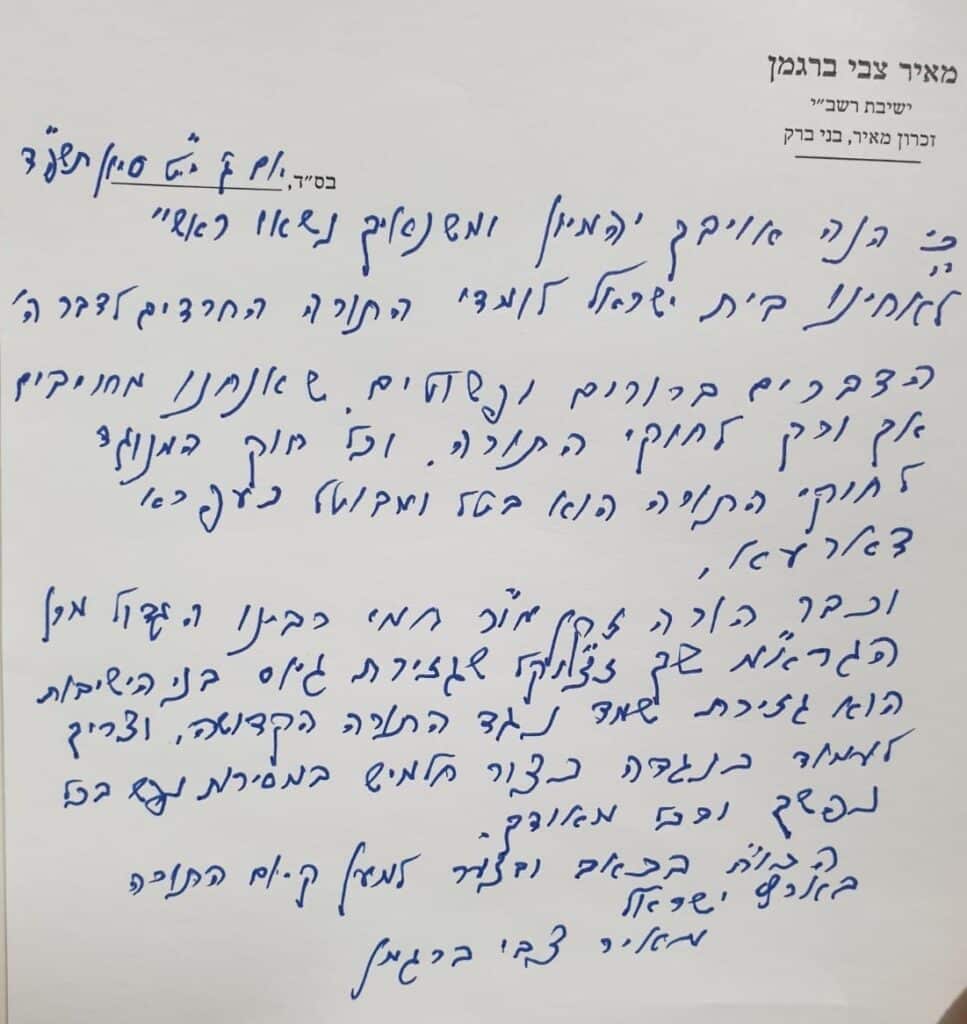 מאיר צבי ברגמן
ישיבת רשב״י
זכרון מאיר, בני ברק
בס״ד, יום ג׳ י״ט סיון תשע״ד
כי הנה אויביך יהמיון ומשנאיך נשאו ראש״
לאחינו בית ישראל לומדי התורה החרדים לדבר ה׳
הדברים ברורים ופשוטים. שאנחנו מחויבים
אך ורק לחוקי התורה. וכל חוק המנוגד
לחוקי התורה הוא בטל ומבוטל כעפרא
דארעא,
וכבר הורה זקן מו״ר חמי רבינו הגדול מרן
הגרא״מ שך זצוק״ל שגזירת גיוס בני הישיבות
הוא גזירת שמד נגד התורה הקדושה, וצריך
לעמוד כנגדה כצור חלמיש במסירות נפש בכל
נפשך ובכל מאודך.
הכו״ח בכאב ובצער למען קיום התורה
בארץ ישראל
מאיר צבי ברגמן